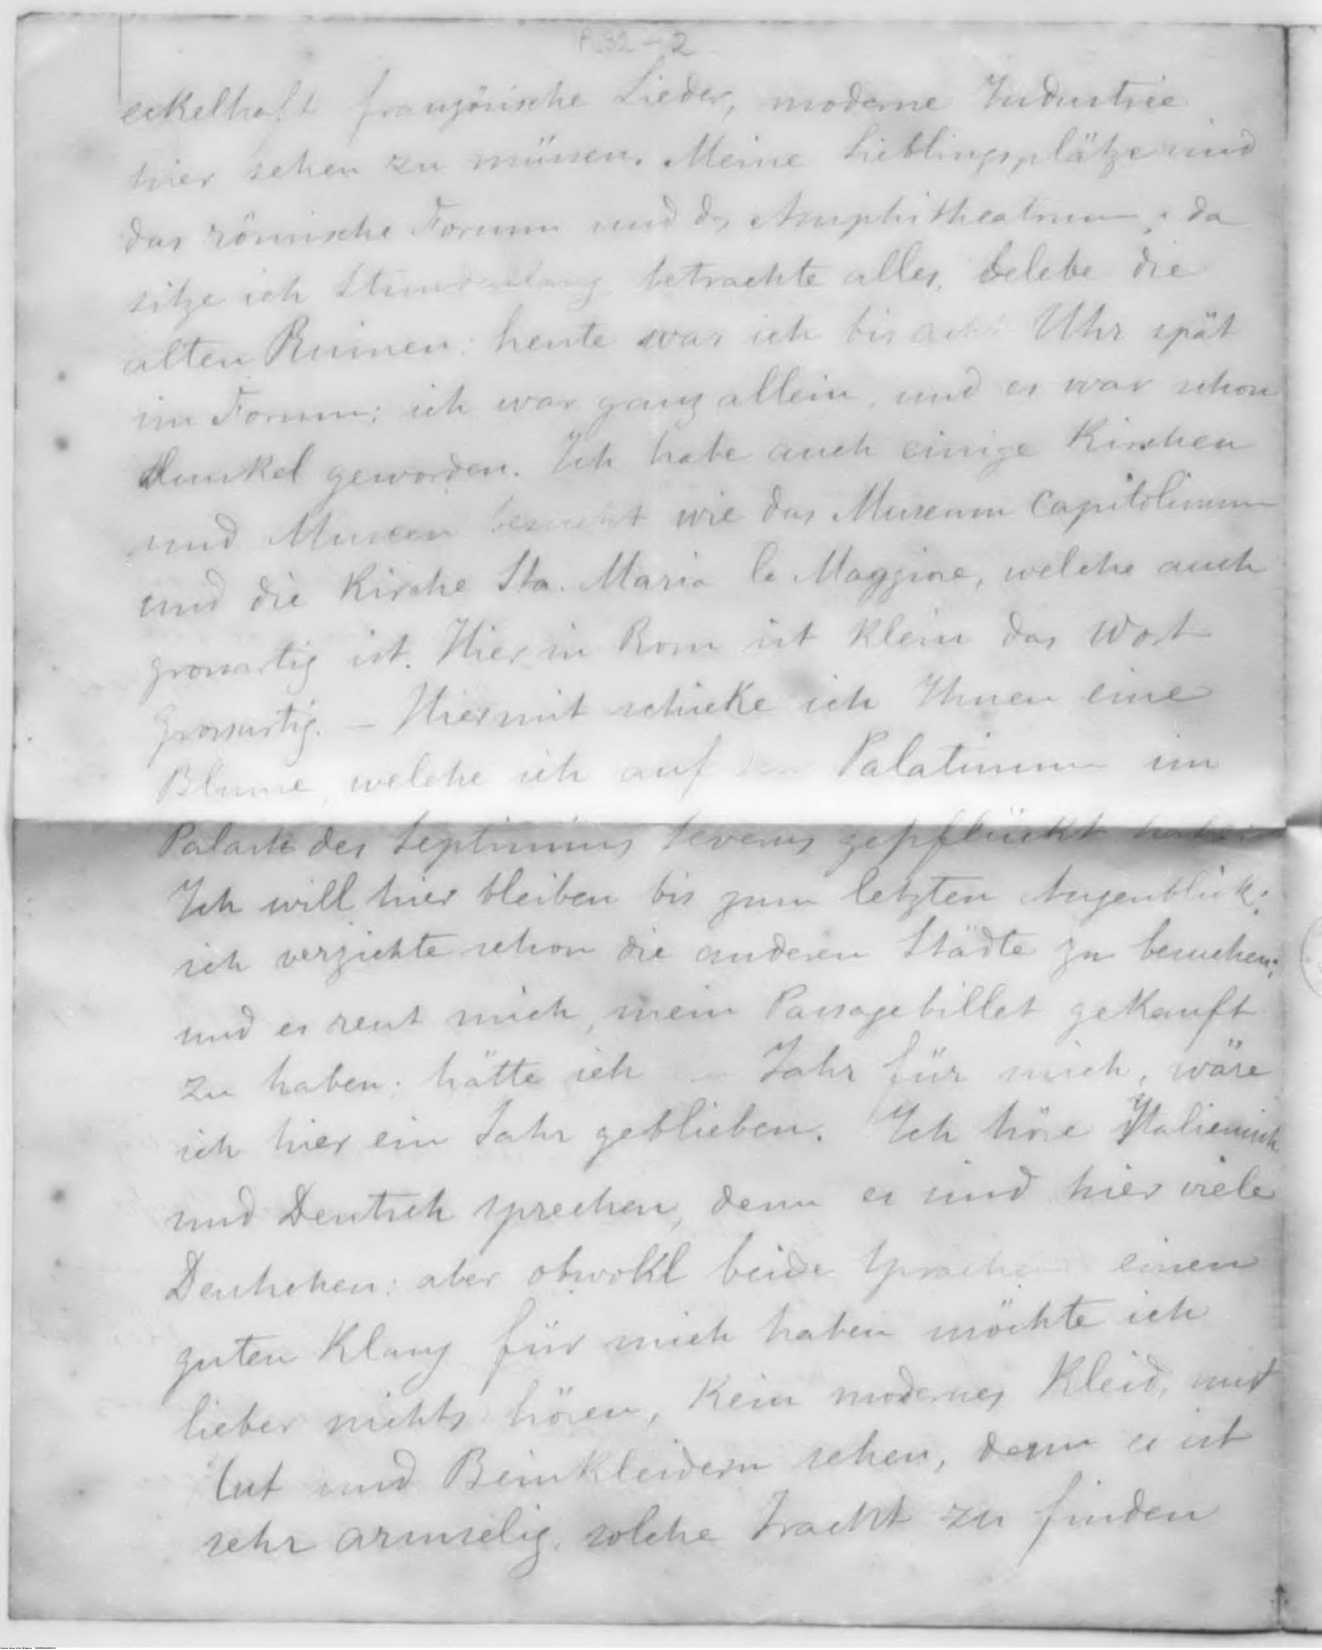 P.32-2
eckelhaft französische Lieder, moderne Industrie
hier sehen zu müssen. Meine Lieblingsplätze sind
das römische Forum und das Amphitheatrum; da
sitze ich Stundenlang betrachte alles, belebe die
alten Ruinen: heute war ich bis acht Uhr spät
im Forum; ich war ganz allein, und es war schon
dunkel geworden. Ich habe auch einige Kirchen
und Museen besucht wie das Museum Capitolinum
und die Kirche Sta. Maria le Maggiore, welche auch
grossartig ist. Hier in Rom ist klein das Wort
grossartig. – Hiermit schicke ich Ihnen eine
Blume, welche ich auf Palatinum im
Palaste des Septimius Severus gepflückt habe.
Ich will hier bleiben bis zum letzten Augenblick;
ich verzichte schon die anderen Städte zu besuchen;
und es reut mich, mein Passagebillet gekauft
zu haben; hätte ich Jahr für mich, wäre
ich hier ein Jahr geblieben. Ich höre Italienisch
und Deutsch sprechen, denn es sind hier viele
Deutschen: aber obwohl beide Sprachen einen
guten Klang für mich haben möchte ich
lieber nichts hören, kein modernes Kleid, mit
Hut und Beinkleidern sehen, denn es ist
sehr armselig, solche Tracht zu finden